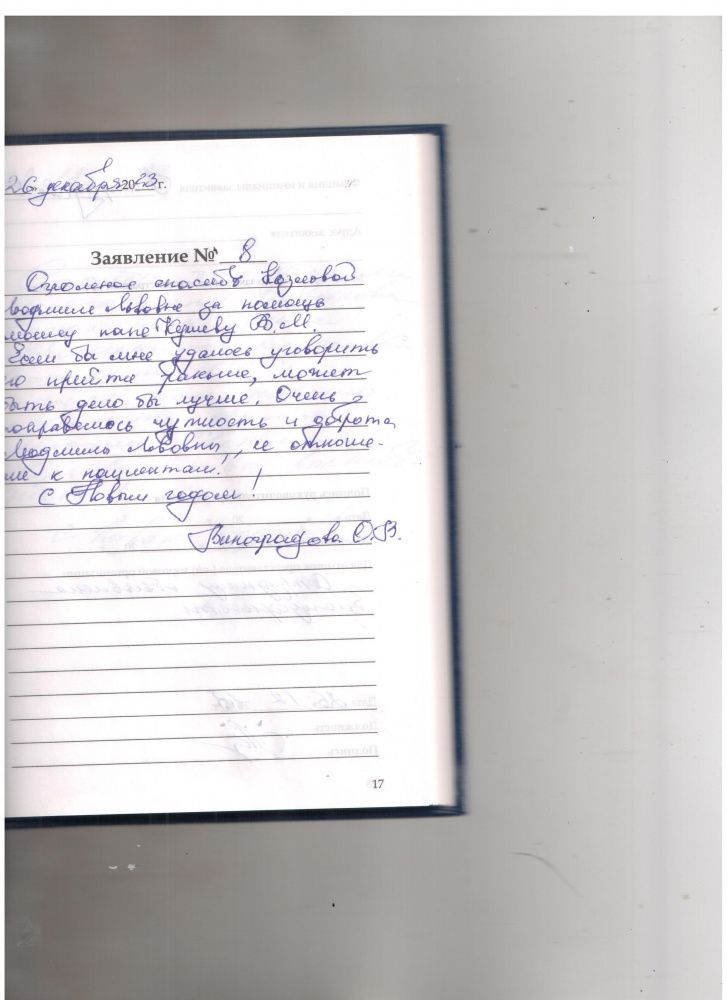 26 декабря 2023 г.
Заявление № 8
Огромное спасибо Козловой
Людмиле Львовне за помощь
моему папе В.М.
Если бы мне удалось уговорить
го прийти раньше, может
быть дело бы лучше. Очень
понравилось чуткость и доброта
Людмилы Львовны, ее отноше-
ие к пациентам!
С Новым годом!
Виноградова О.В.
17